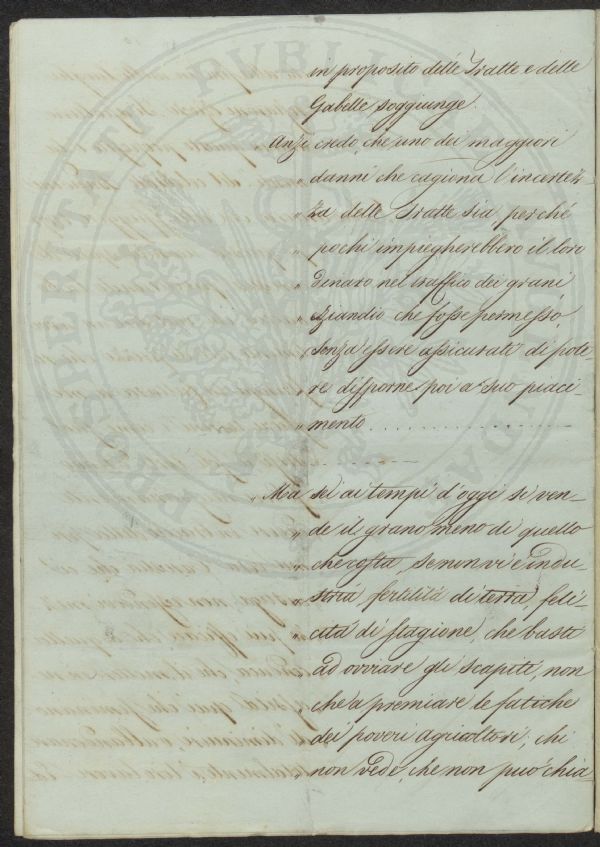 in proposito delle Tratte e delle
Gabelle soggiunge.
Anzi credo, che uno dei maggiori
„ danni che cagiona l'incertez-
„ za delle Tratte sia, perché
„ pochi impiegherebbero il loro
„ denaro nel traffico dei grani
„ eziandio che fosse permesso,
„ senza essere assicurati di pote-
„ re disporne poi a suo piaci-
„ mento . . . . . . . . . . . . . .
. . . . . . . .
„ Ma se ai tempi d'oggi si ven-
„ de il grano meno di quello
„ che costa, se non vi è indu-
„ stria, fertilità di terra, feli-
„ cità di stagione, che basti
„ ad ovviare gli scapiti, non
„ che a premiare le fatiche
„ dei poveri agricoltori; chi
„ non vede, che non può chia-
PROSPERITATI PVBLICAE